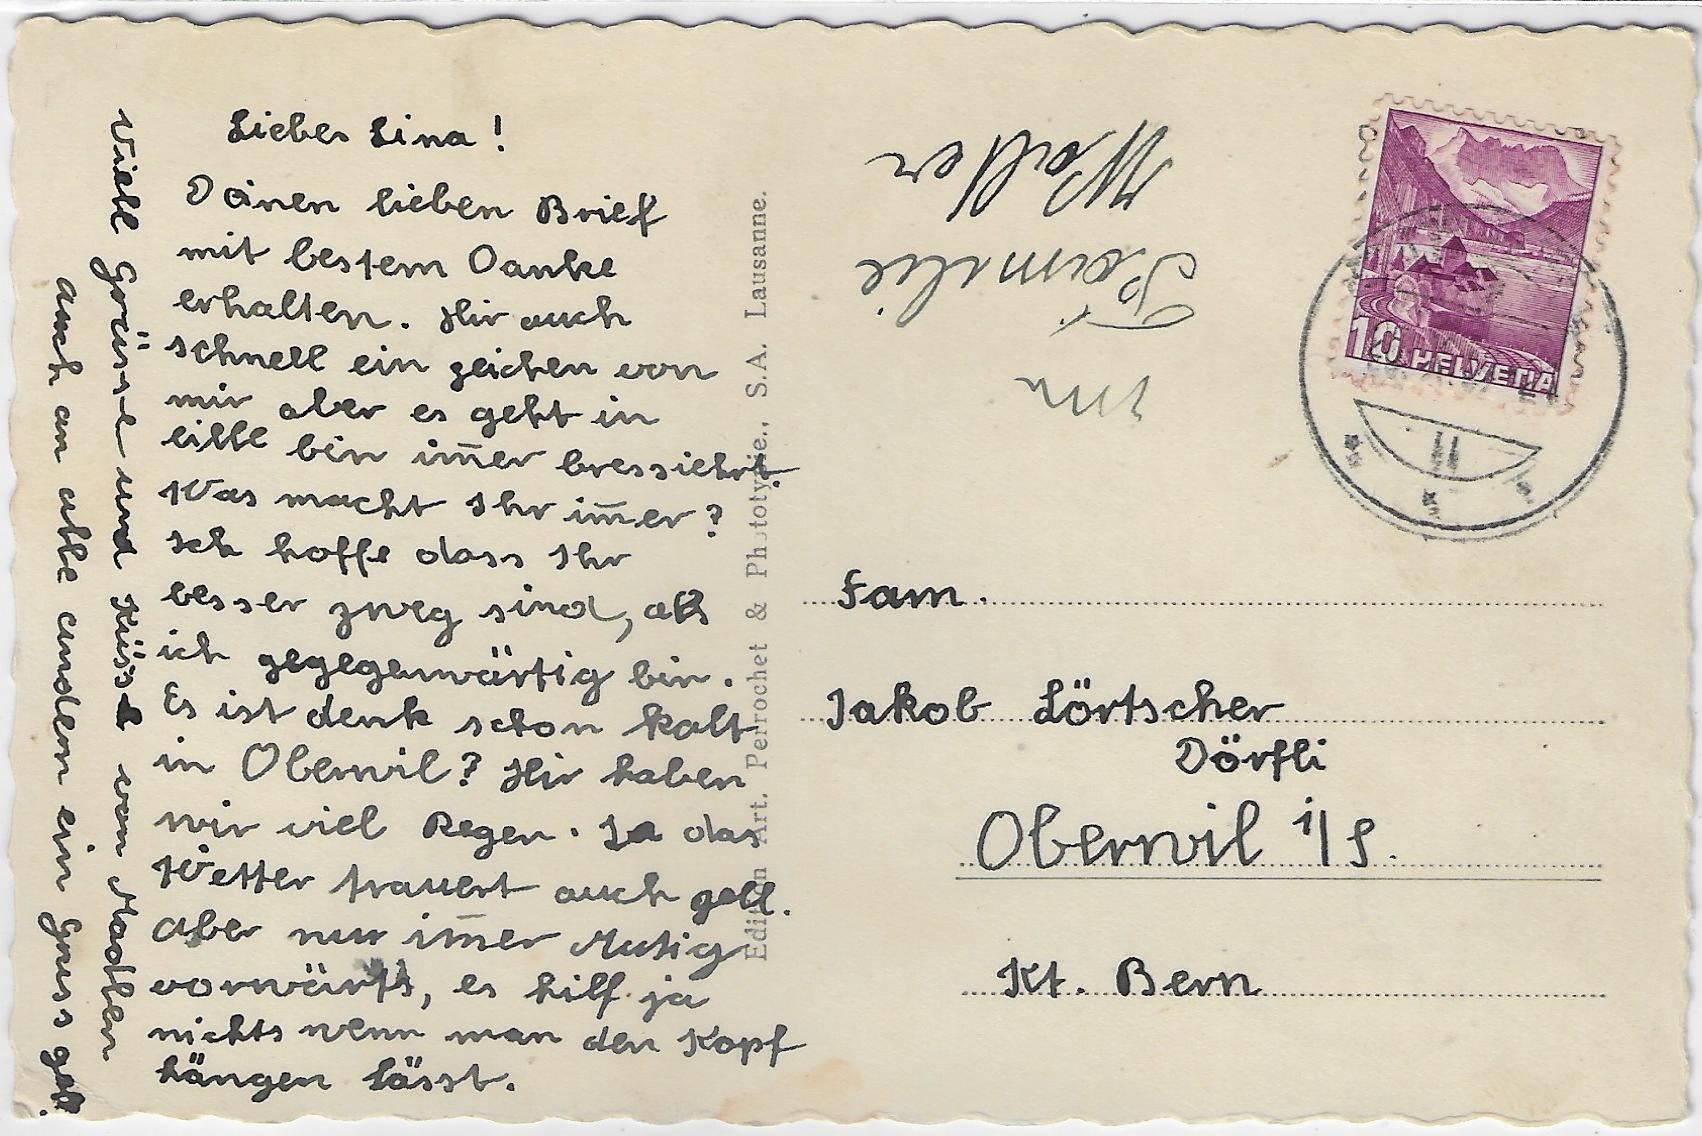 Liebes Lina!
Deinen lieben Brief
mit bestem Danke
erhalten. Hir auch
schnell ein zeichen von
mir aber es geht in
eille bin im̅er bressiehrt.
Was macht Ihr im̅er?
Ich hoffe dass Ihr
besser zweg sind, als
ich gegegenwärtig bin.
Es ist denk schon kalt
in Oberwil? Hir haben
wir viel Regen. Ja das
Wetter trauert auch gell.
Aber nur im̅er Mutig
vorwärts, es hilf ja
nichts wenn man den Kopf
hängen lässt.
Viele Grüsse und Küsse von
auch an alle andern ein Gruss gell.
Edition Art. Perrochet & Phototypie., S.A. Lausanne.
Familie
Walter
10 HELVETIA
Fam.
Jakob Lörtscher
Dörfli
Oberwil i/S.
Kt. Bern